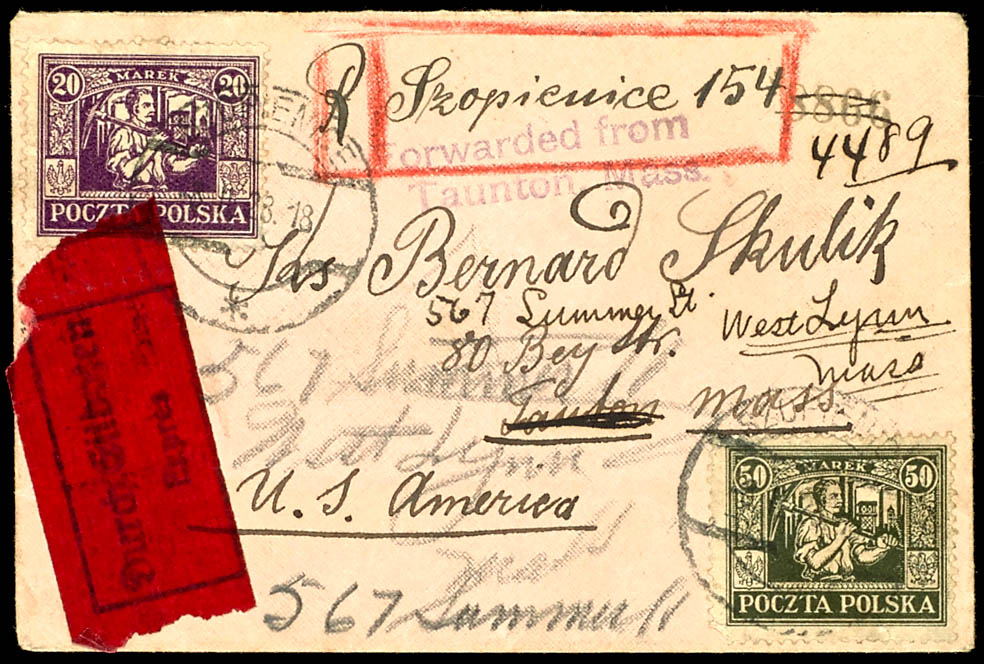 20 MAREK 20
POCZTA POLSKA
R Szopienice 154
8866
4489
Forwarded from
Taunton, Mass.
Bernard Skulik
567 Summer St.
West Lynn
Mass
80 Bey Str.
Taunton Mass
567 Summer
West Lynn
Mass
U. S. America
567 Summer St
Durch Eilboten
Exprès
50 MAREK 50
POCZTA POLSKA